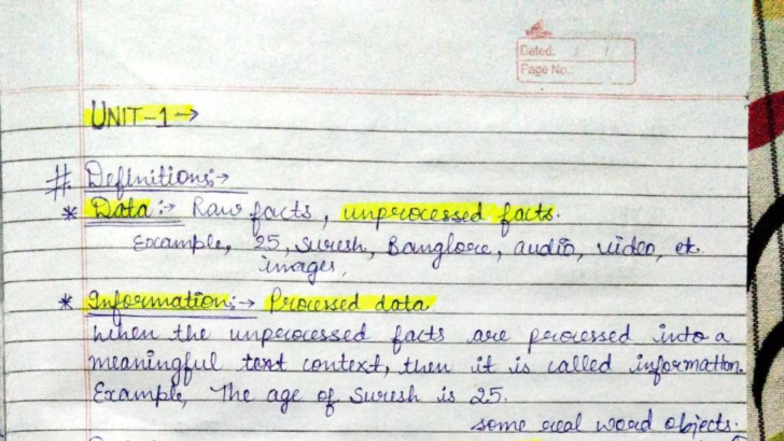 Dated. / /
Page No.:
UNIT-1→
# Definitions:→
* Data:→ Raw facts, unprocessed facts.
Example, 25, Suresh, Banglore, audio, video, etc.
images,
* Information:→ Processed data
When the unprocessed facts are processed into a
meaningful text context, then it is called information.
Example, The age of Suresh is 25.
some real word objects.